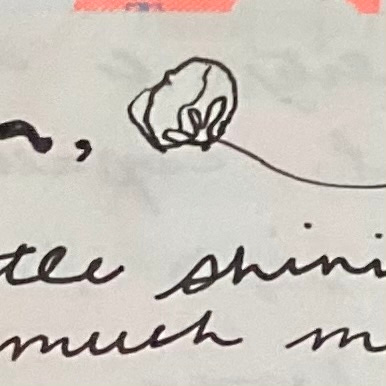 ,
tle shini
much m